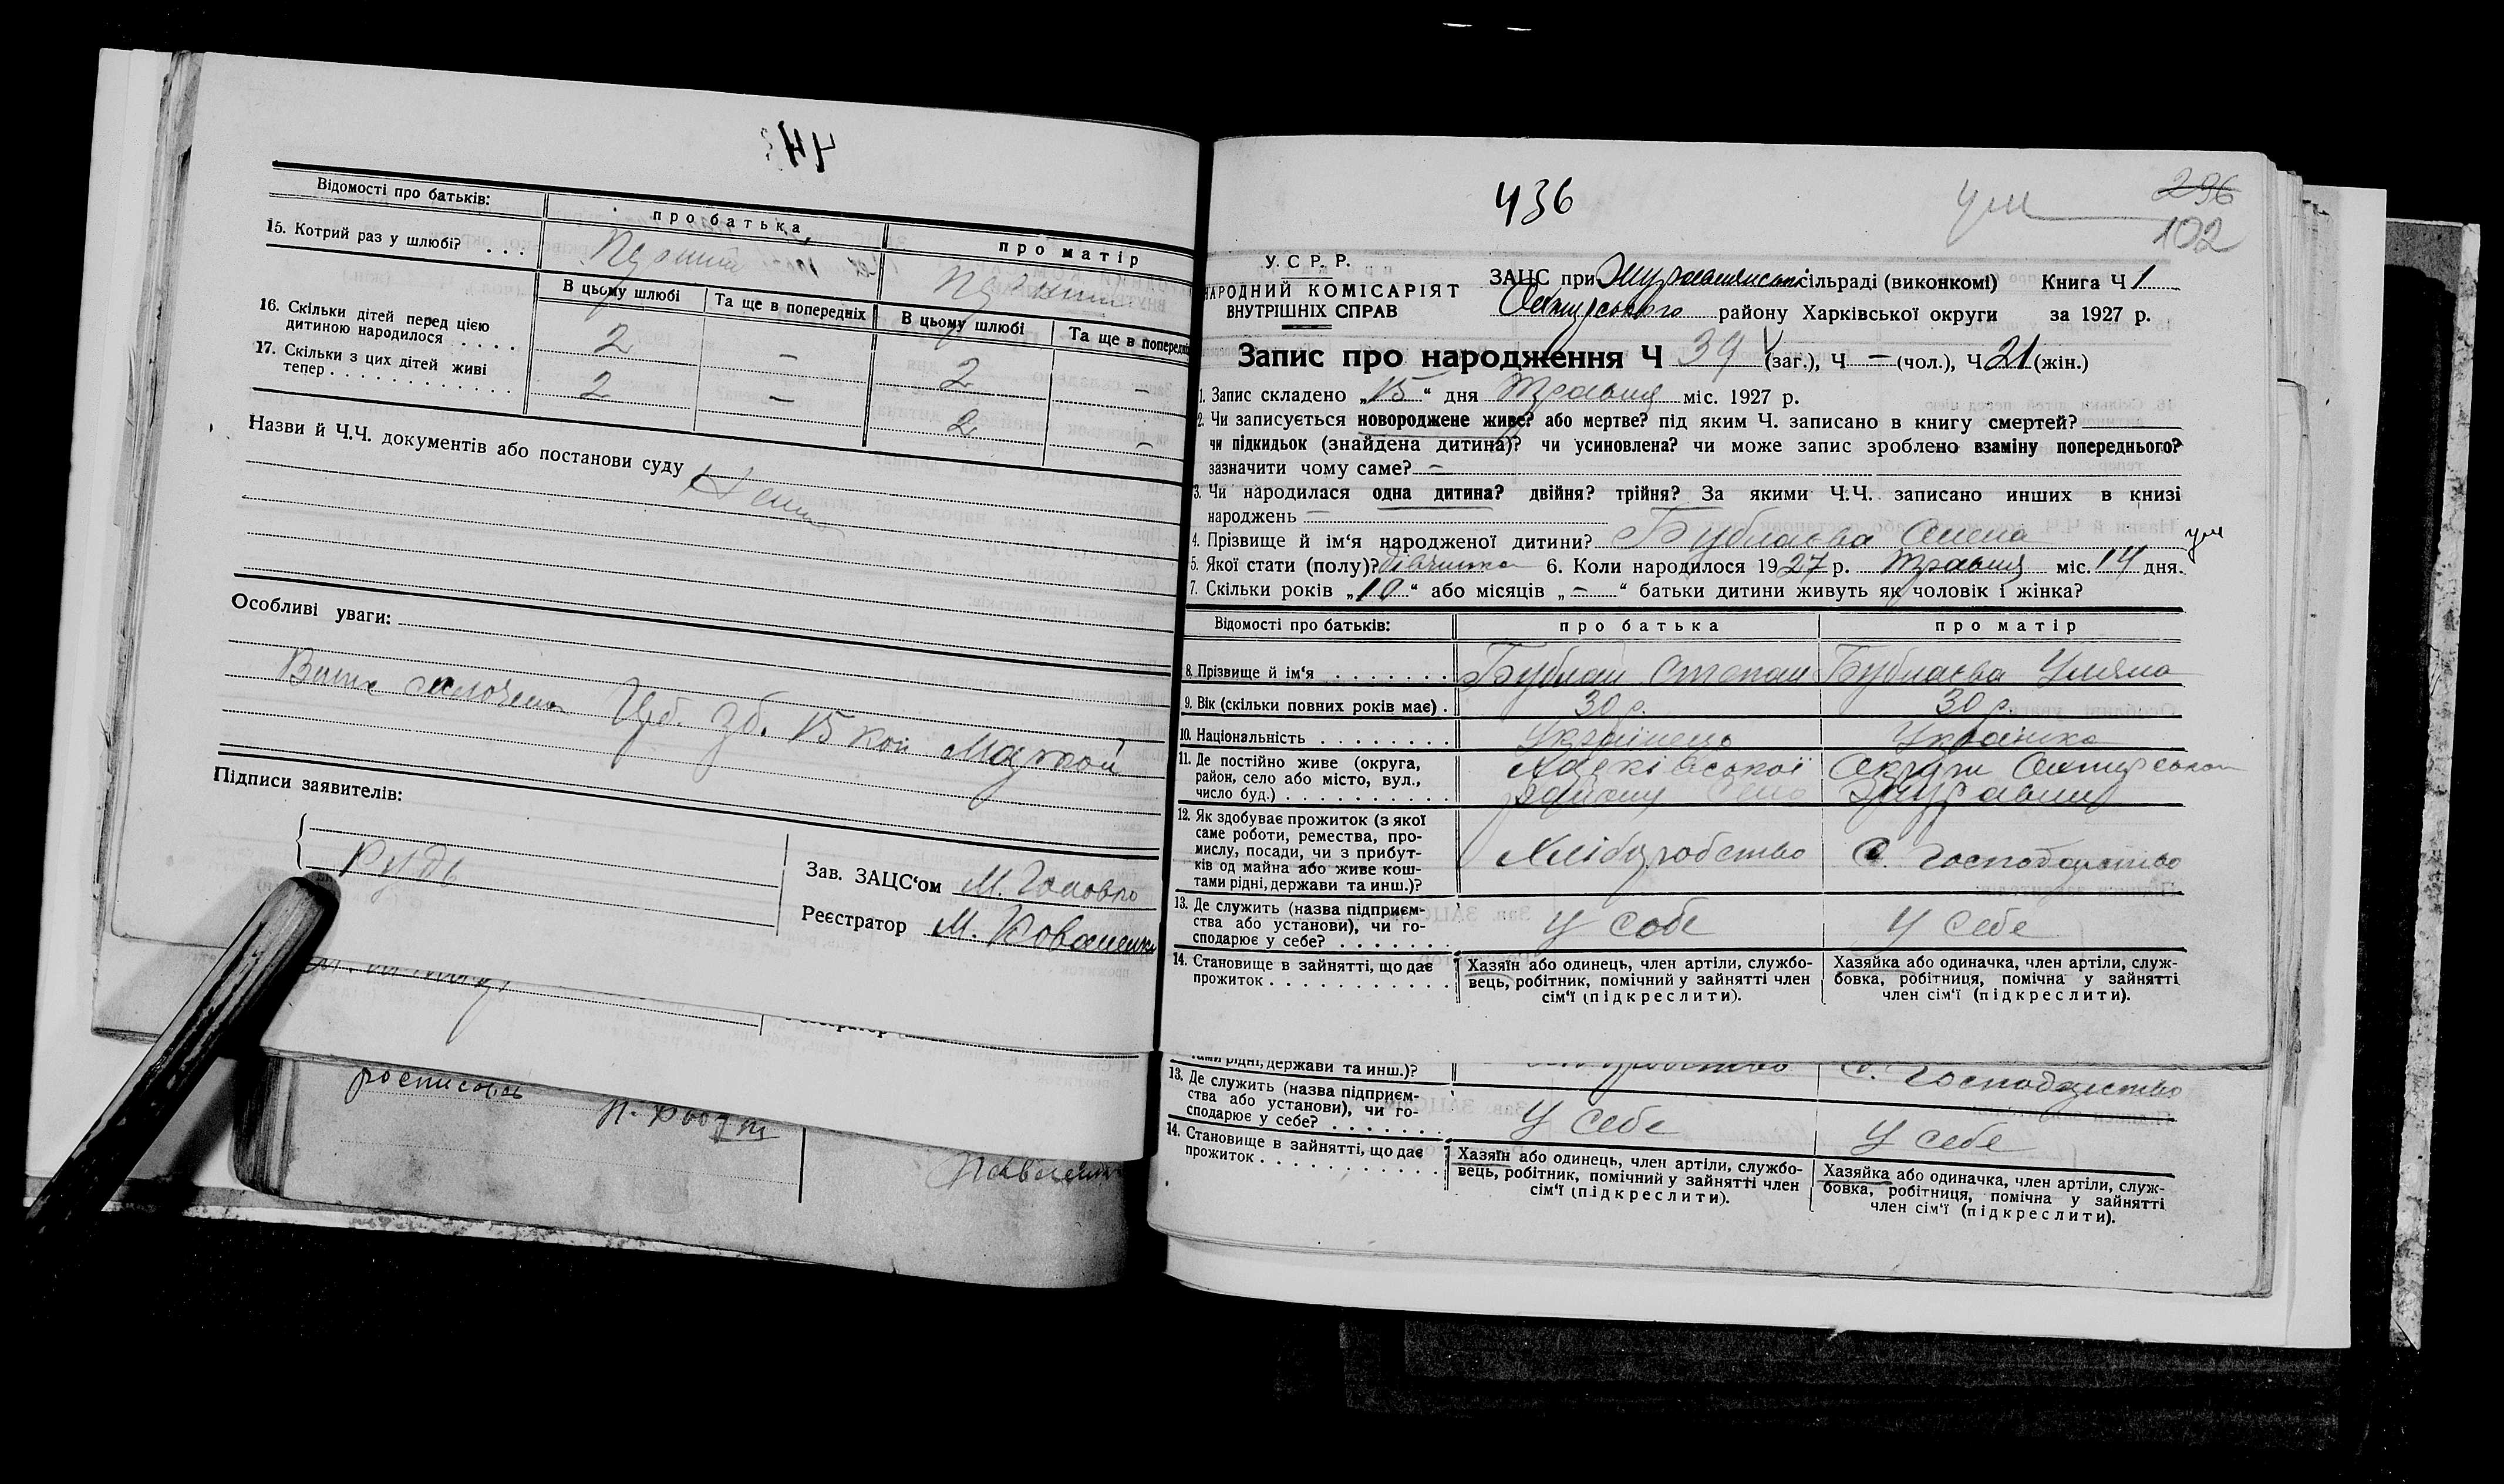 Відомості про батьків:
про батька
про матір
15. Котрий раз у шлюбі? . . .
Перший
Перший
В цьому шлюбі
Та ще в попередніх
В цьому шлюбі
Та ще в попередніх
16. Скільки дітей перед цією
дитиною народилося . . . .
2
–
2
–
17. Скільки з цих дітей живі
тепер . . . . . . . . . . . .
2
–
2
–
Назви й Ч.Ч. документів або постанови суду
Особливі уваги:
зб. 15 коп Маркой
Підписи заявителів:
Рудь
Зав. ЗАЦС'ом М. Головко
Реєстратор М. Коваленко
росписовсь
436
296
102
У. С. Р. Р.
НАРОДНИЙ КОМІСАРІЯТ
ВНУТРІШНІХ СПРАВ
ЗАЦС при сільраді (виконкомі) Книга Ч 1
району Харківської округи за 1927 р.
Запис про народження Ч 39 (заг.), Ч – (чол.), Ч 21 (жін.)
1. Запис складено „15" дня Травня міс. 1927 р.
2. Чи записується новороджене живе? або мертве? під яким Ч. записано в книгу смертей?
чи підкидьок (знайдена дитина)? чи усиновлена? чи може запис зроблено взаміну попереднього?
зазначити чому саме? –
3. Чи народилася одна дитина? двійня? трійня? За якими Ч.Ч. записано инших в книзі
народжень –
4. Прізвище й ім'я народженої дитини? Бублаєва Олена
5. Якої стати (полу)? дівчинка 6. Коли народилося 1927 р. Травня міс. 14 дня.
7. Скільки років „10" або місяців „–" батьки дитини живуть як чоловік і жінка?
Відомості про батьків:
про батька
про матір
8. Прізвище й ім'я . . . . . . .
Бублай Степан
Бублаєва Уляна
9. Вік (скільки повних років має) .
30 р.
30 р.
10. Національність . . . . . . . .
Українець
Українка
11. Де постійно живе (округа,
район, село або місто, вул.,
число буд.) . . . . . . . . . .
Харківської Округи
району село
12. Як здобуває прожиток (з якої
саме роботи, ремества, про-
мислу, посади, чи з прибут-
ків од майна або живе кош-
тами рідні, держави та инш.)?
Хліборобство
С. Господарство
13. Де служить (назва підприєм-
ства або установи), чи го-
сподарює у себе? . . . . . . .
У собе
У себе
14. Становище в зайнятті, що дає
прожиток . . . . . . . . . . .
Хазяїн або одинець, член артіли, службо-
вець, робітник, помічний у зайнятті член
сім'ї (підкреслити).
Хазяйка або одиначка, член артіли, служ-
бовка, робітниця, помічна у зайнятті
член сім'ї (підкреслити).
тами рідні, держави та инш.)?
С. Господарство
13. Де служить (назва підприєм-
ства або установи), чи го-
сподарює у себе? . . . . . . .
У себе
У себе
14. Становище в зайнятті, що дає
прожиток . . . . . . . . . . .
Хазяїн або одинець, член артіли, службо-
вець, робітник, помічний у зайнятті член
сім'ї (підкреслити).
Хазяйка або одиначка, член артіли, служ-
бовка, робітниця, помічна у зайнятті
член сім'ї (підкреслити).